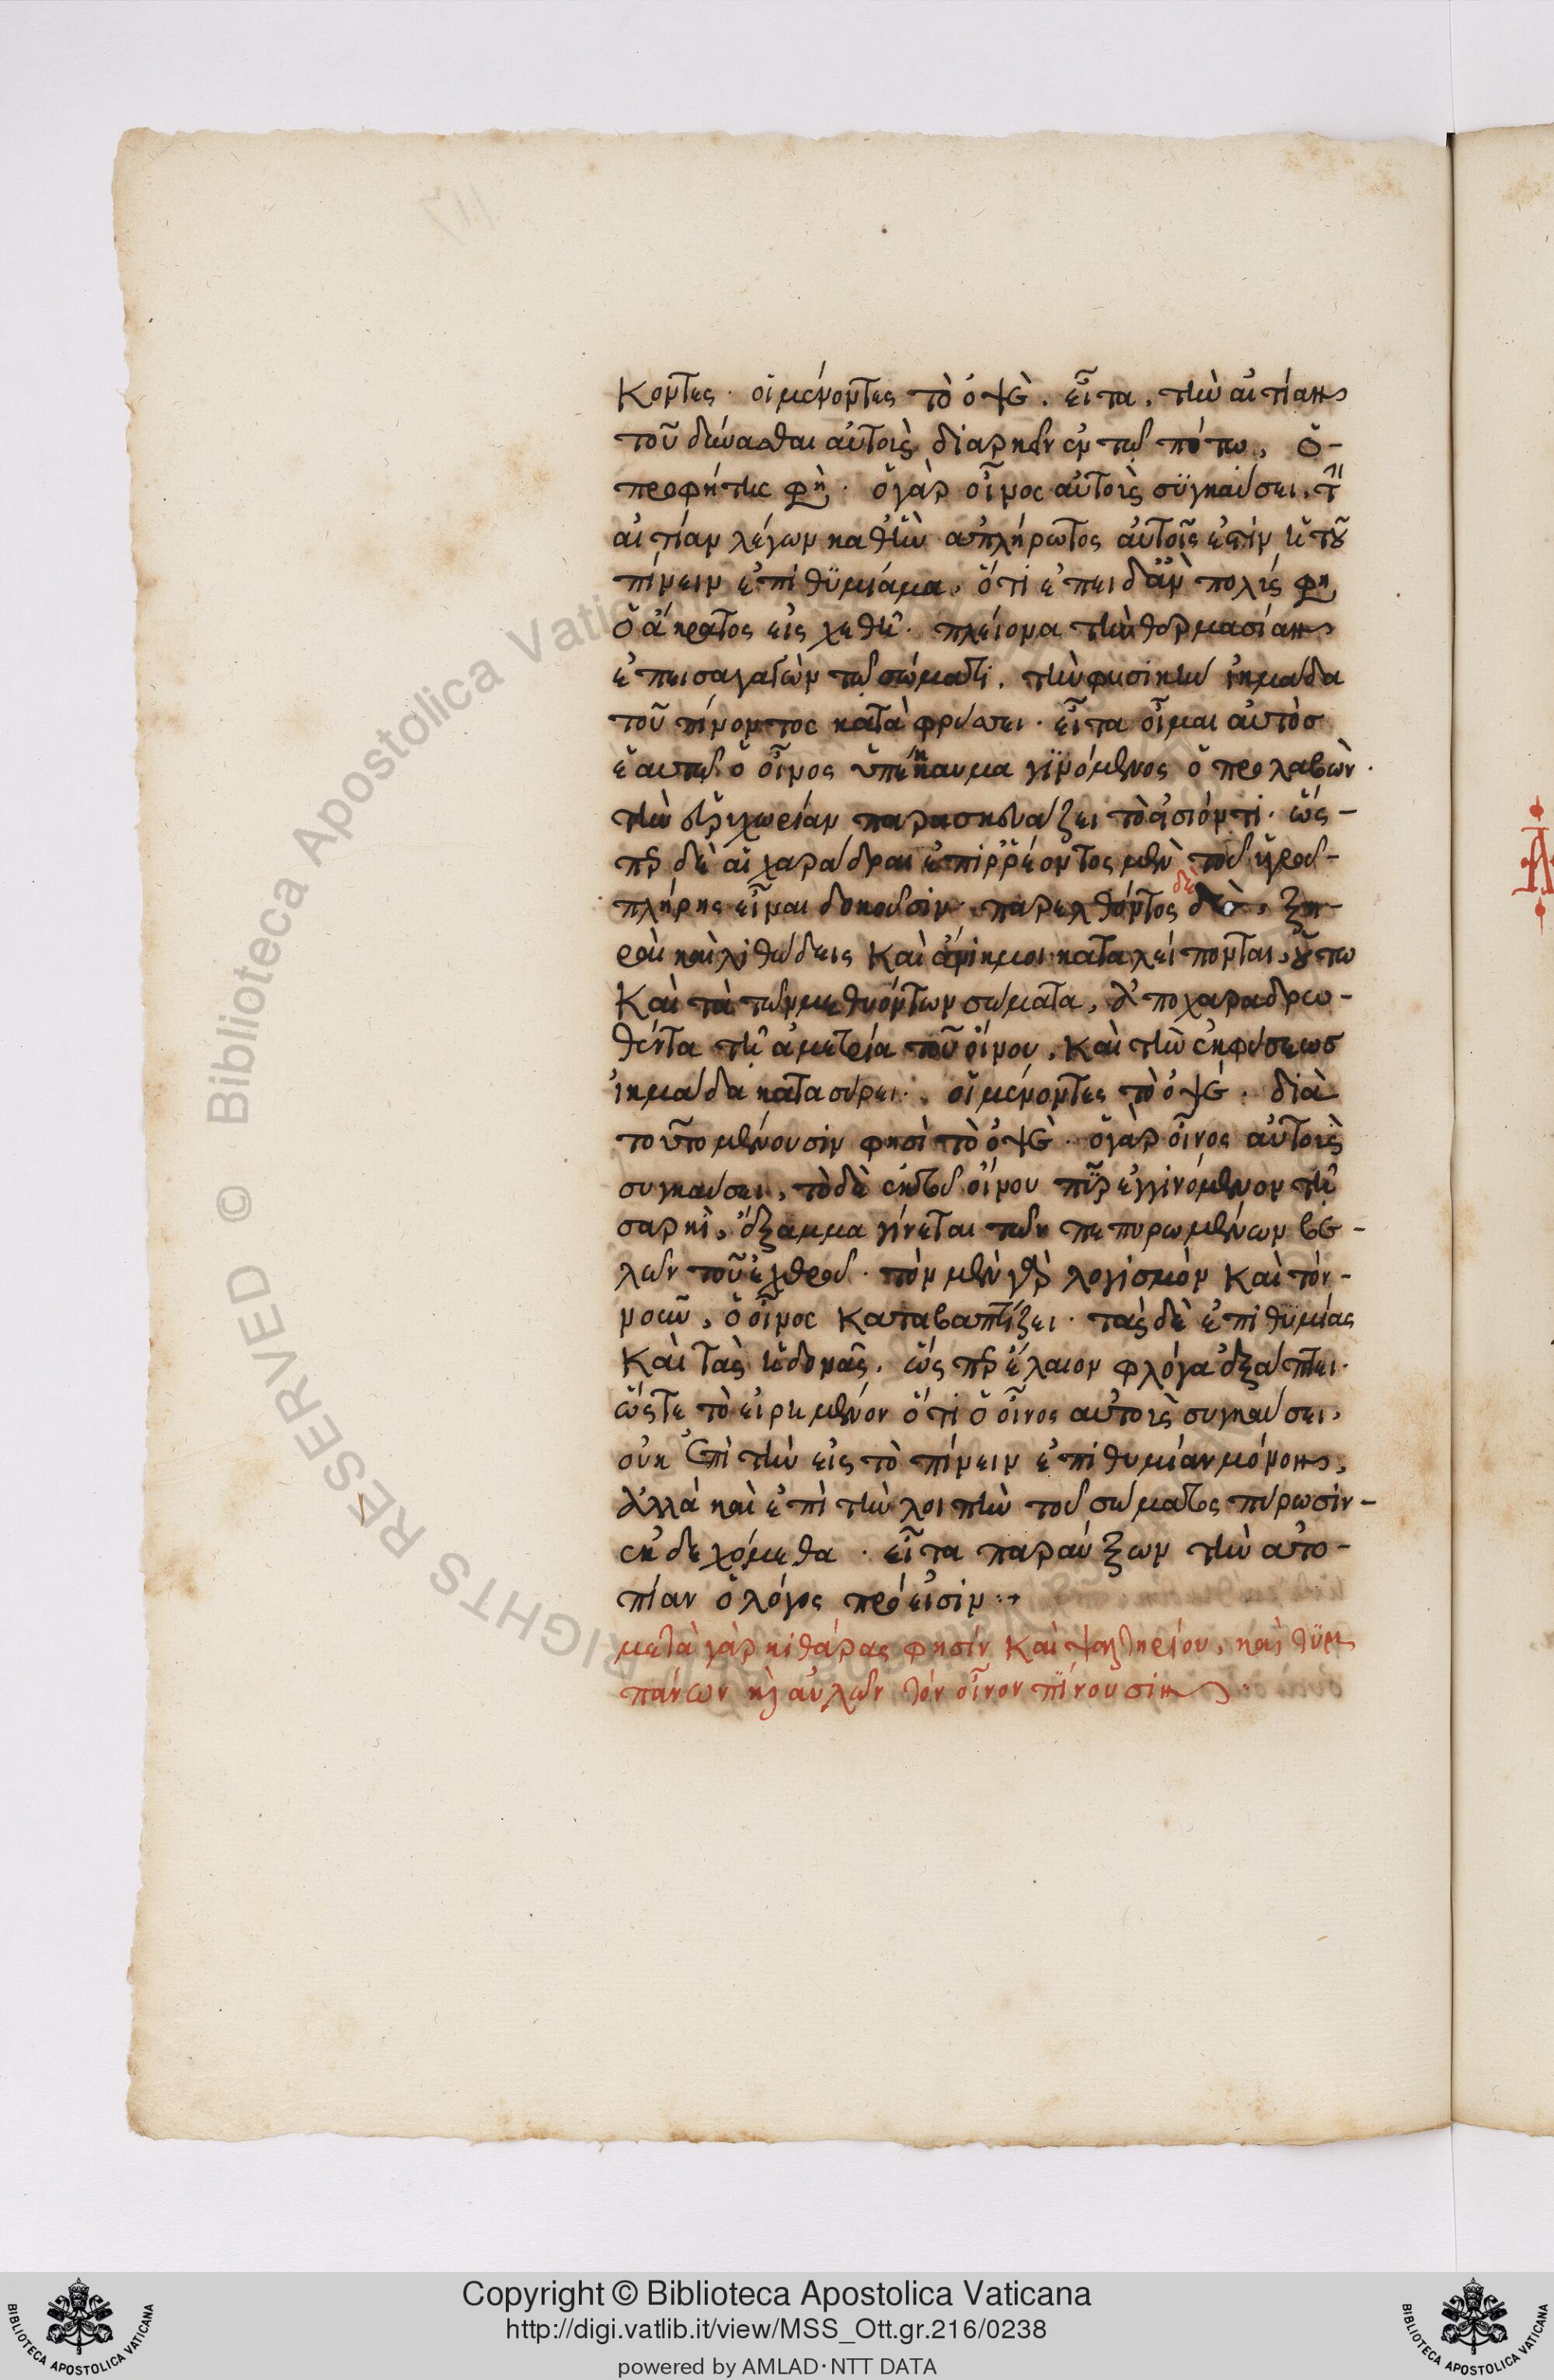 κοντες· οἱ μένοντες τὸ ὀψὲ. εἶτα, τὴν αἰτίαν
τοῦ δύνασθαι αὐτοῖς διαρκεῖν ἐν τῷ πότῳ, ὁ-
προφήτης φὴ· ὁ γὰρ οἶνος αὐτοῖς συγκαύσει. τ
αἰτίαν λέγων καθ' ἣν ἀπλήρωτος αὐτοῖς ἐστὶν ἡ τοῦ
πίνειν ἐπιθϋμιάμα, ὅτι ἐπειδὰν πολὺς φη
ὁ ἄκρατος εἰς χεθῇ. πλείονα τὴν θερμασίαν
ἐπεισαγαγὼν τῷ σώματι, τὴν φυσικὴν ἰκμάδα
τοῦ πίνοντος καταφρύσσει· εἶτα οἶμαι αὐτὸσ
ἑαυτῷ ὁ οἶνος ὑπέκκαυμα γϊνόμενος ὁ προλαβὼν.
τὴν εὐρυχωρίαν παρασκευάζει τὸ εἰσιόντι. ὥς-
περ δὲ αἱ χαράδραι ἐπιῤῥέοντος μὲν τοῦ ὑγροῦ-
πλήρης εἶναι δοκοῦσιν· παρελθόντος δὲ, ξη-
ραὶ καὶ λιθώδεις καὶ ἄνικμοι καταλείπονται, οὕτω
καὶ τὰ τῶν μεθυόντων σώματα, ἀποχαραδρω-
θέντα τῇ ἀμετρία τοῦ οἴνου, καὶ τὴν ἐκφύσεωσ
ἰκμάδα κατασύρει. οἱ μένοντες τὸ ὀψέ. διὰ
τοῦτο μένουσιν φησὶ τὸ ὀψὲ. ὁ γὰρ οἶνος αὐτοῖς
συγκαύσει, τὸ δὲ ἐκ τοῦ οἴνου πῦρ ἐγγινόμενον τῇ
σαρκὶ, ἔξαμμα γίνεται τῶν πεπυρωμένων βε-
λῶν τοῦ ἐχθροῦ. τὸν μὲν γὰρ λογισμὸν καὶ τὸν-
νοῦν, ὁ οἶνος καταβαπτίζει. τὰς δὲ ἐπιθϋμίας
καὶ τὰς ἡδονὰς, ὥς περ ἔλαιον φλόγα ἐξάπτει.
ὥςτε τὸ εἰρημένον ὅτι ὁ οἶνος αὐτοῖς συγκαύσει,
οὐκ ἐπὶ τὴν εἰς τὸ πίνειν ἐπιθυμίαν μόνον,
ἀλλὰ καὶ ἐπὶ τὴν λοιπὴν τοῦ σώματος πύρωσιν-
ἐκδεχόμεθα. εἶτα παραύξων τὴν ἀτο-
πίαν ὁ λόγος πρόεισιν·
μετὰ γὰρ κιθάρας φησίν καὶ ψαλτηρίου, καὶ τϋμ
πάνων κὶ αὐλῶν τὸν οἶνον πίνουσιν
Copyright © Biblioteca Apostolica Vaticana
http://digi.vatlib.it/view/MSS_Ott.gr.216/0238
powered by AMLAD·NTT DATA